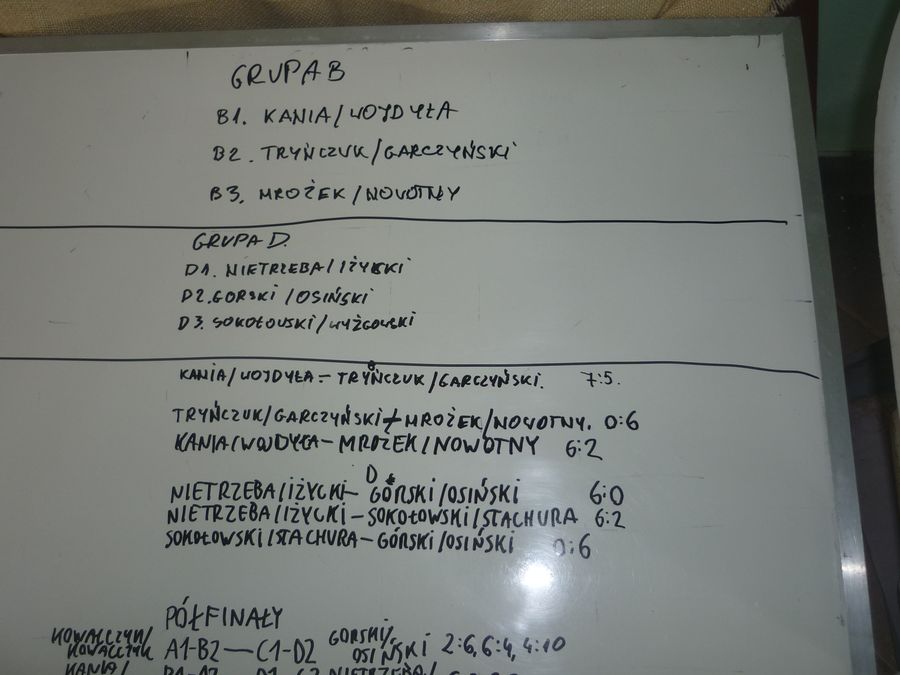 GRUPA B
B1. KANIA/WOJDYŁA
B2. TRYŃCZUK/GARCZYŃSKI
B3. MROŻEK/NOVOTNY
GRUPA D.
D1. NIETRZEBA/IŻYCKI
D2. GORSKI/OSIŃSKI
D3. SOKOŁOWSKI/WYŻGOWSKI
KANIA/WOJDYŁA - TRYŃCZUK/GARCZYŃSKI. 7:5.
TRYŃCZUK/GARCZYŃSKI - MROŻEK/NOVOTNY. 0:6
KANIA/WOJDYŁA - MROŻEK/NOWOTNY 6:2
D
NIETRZEBA/IŻYCKI - GÓRSKI/OSIŃSKI 6:0
NIETRZEBA/IŻYCKI - SOKOŁOWSKI/STACHURA 6:2
SOKOŁOWSKI/STACHURA - GÓRSKI/OSIŃSKI 0:6
PÓŁFINAŁY
KOWALCZYK/KOWALCZYK A1-B2 — C1-D2 GORSKI/OSIŃSKI 2:6, 6:4, 4:10
KANIA/ NIETRZEBA/